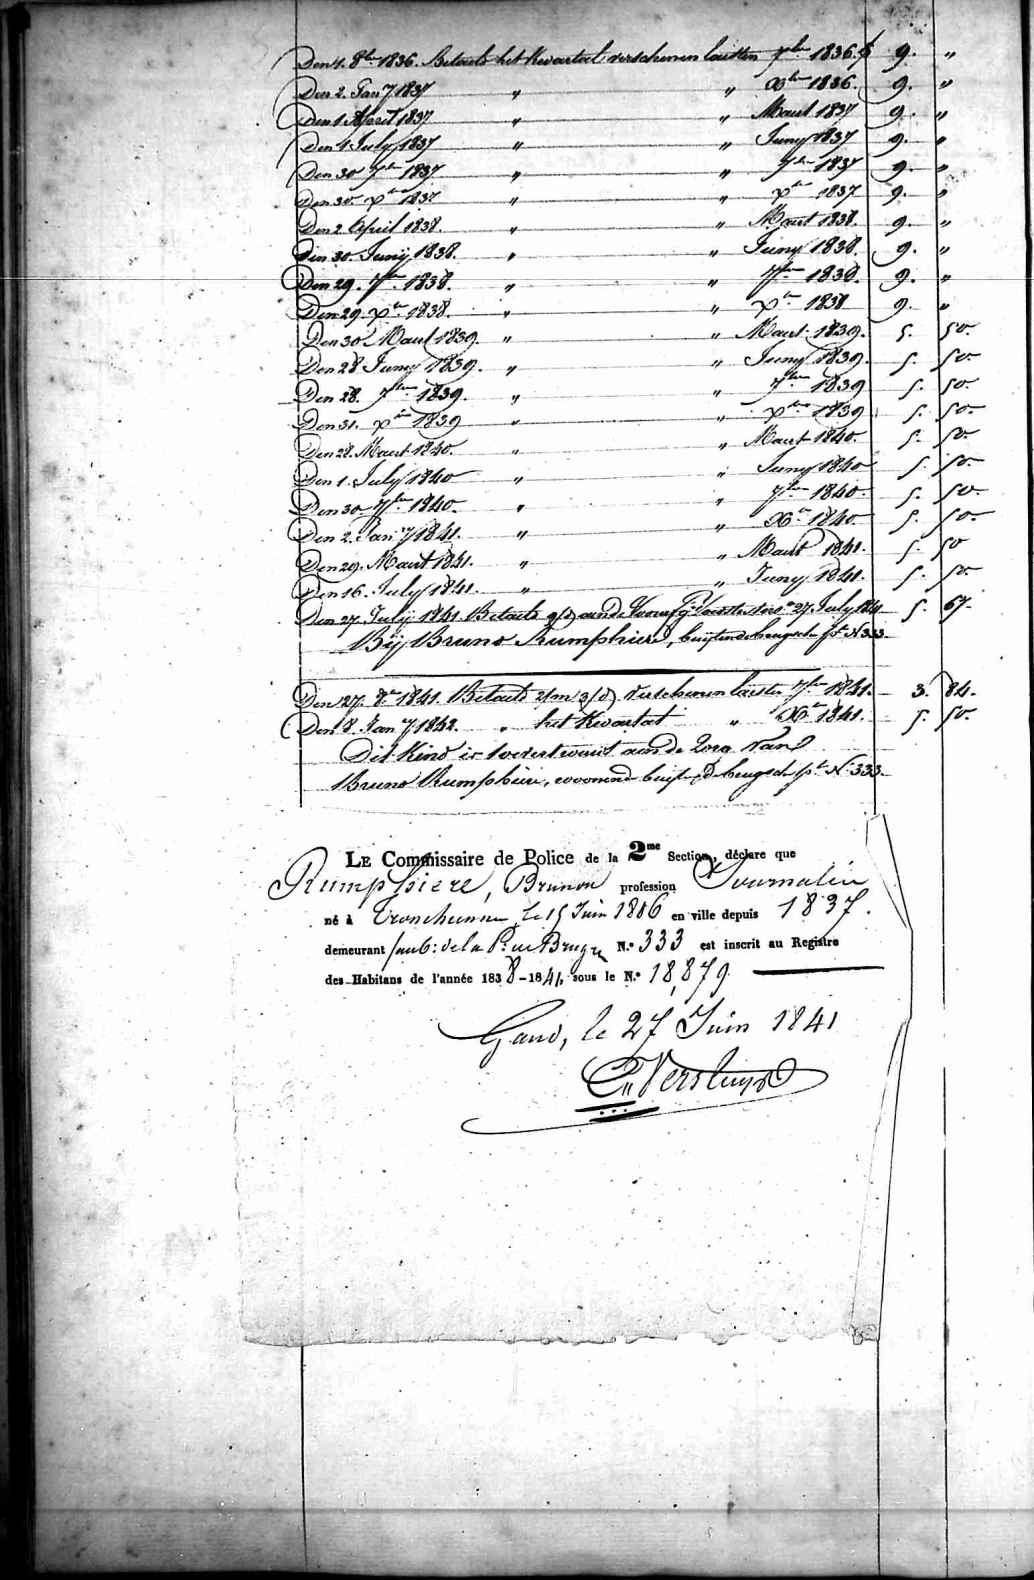 Den 4. 8bre 1836. Betaelt het Kwartael verschenen laisten 7ber 1836. f 9. "
Den 2. Jany 1837 " " Xber 1836. 9. "
Den 1 April 1837 " " Maert 1837 9. "
Den 4 July 1837 " " Juny 1837 9. "
Den 30 7ber 1837 " " 7ber 1837 9. "
Den 30 xber 1837 " " xber 1837 9. "
Den 2 April 1838. " " Maert 1838. 9. "
Den 30. Junij 1838. " " Juny 1838. 9. "
Den 29. 7ber 1838. " " 7ber 1838. 9. "
Den 29. xber 1838. " " xber 1838 9. "
Den 30 Maert 1839. " " Maert 1839. 5. 50.
Den 28 Juny 1839. " " Juny 1839. 5. 50
Den 28. 7ber 1839. " " 7ber 1839 5. 50.
Den 31. xber 1839 " " xber 1839 5. 50.
Den 28. Maert 1840. " " Maert 1840. 5. 50.
Den 1. July 1840 " " Juny 1840 5. 50.
Den 30. 7ber 1840. " " 7ber 1840. 5. 50.
Den 2. Jany 1841. " " Xber 1840. 5. 50.
Den 29. Maert 1841. " " Maert 1841. 5. 50
Den 16. July 1841. " " Juny 1841. 5. 50.
Den 27 Julij 1841 Betaelt aan de 27 July 1841 5. 67.
Bij Bruno Rumphiere, buijten de brugsche pt N 333.
Den 27. 8re 1841. Betaelt 2/m 3/d verschenen laisten 7ber 1841. 3. 84.
Den 8 Jany 1842. " het Kwartael " Xber 1841. 5. 50.
Dit Kind is toevertrouwt aan de Zorg van
Bruno Rumphiere, woonende buijten de brugsche pt N. 333.
LE Commissaire de Police de la 2me Section, déclare que
Rumphiere, Brunon profession Journalier
né à Tronchiennes, le 15 Juin 1806 en ville depuis 1837.
demeurant faub: de la P: de Bruges N.° 333 est inscrit au Registre
des Habitans de l'année 1838-1841, sous le N.° 18,879
Gand, le 27 Juin 1841
Versluys